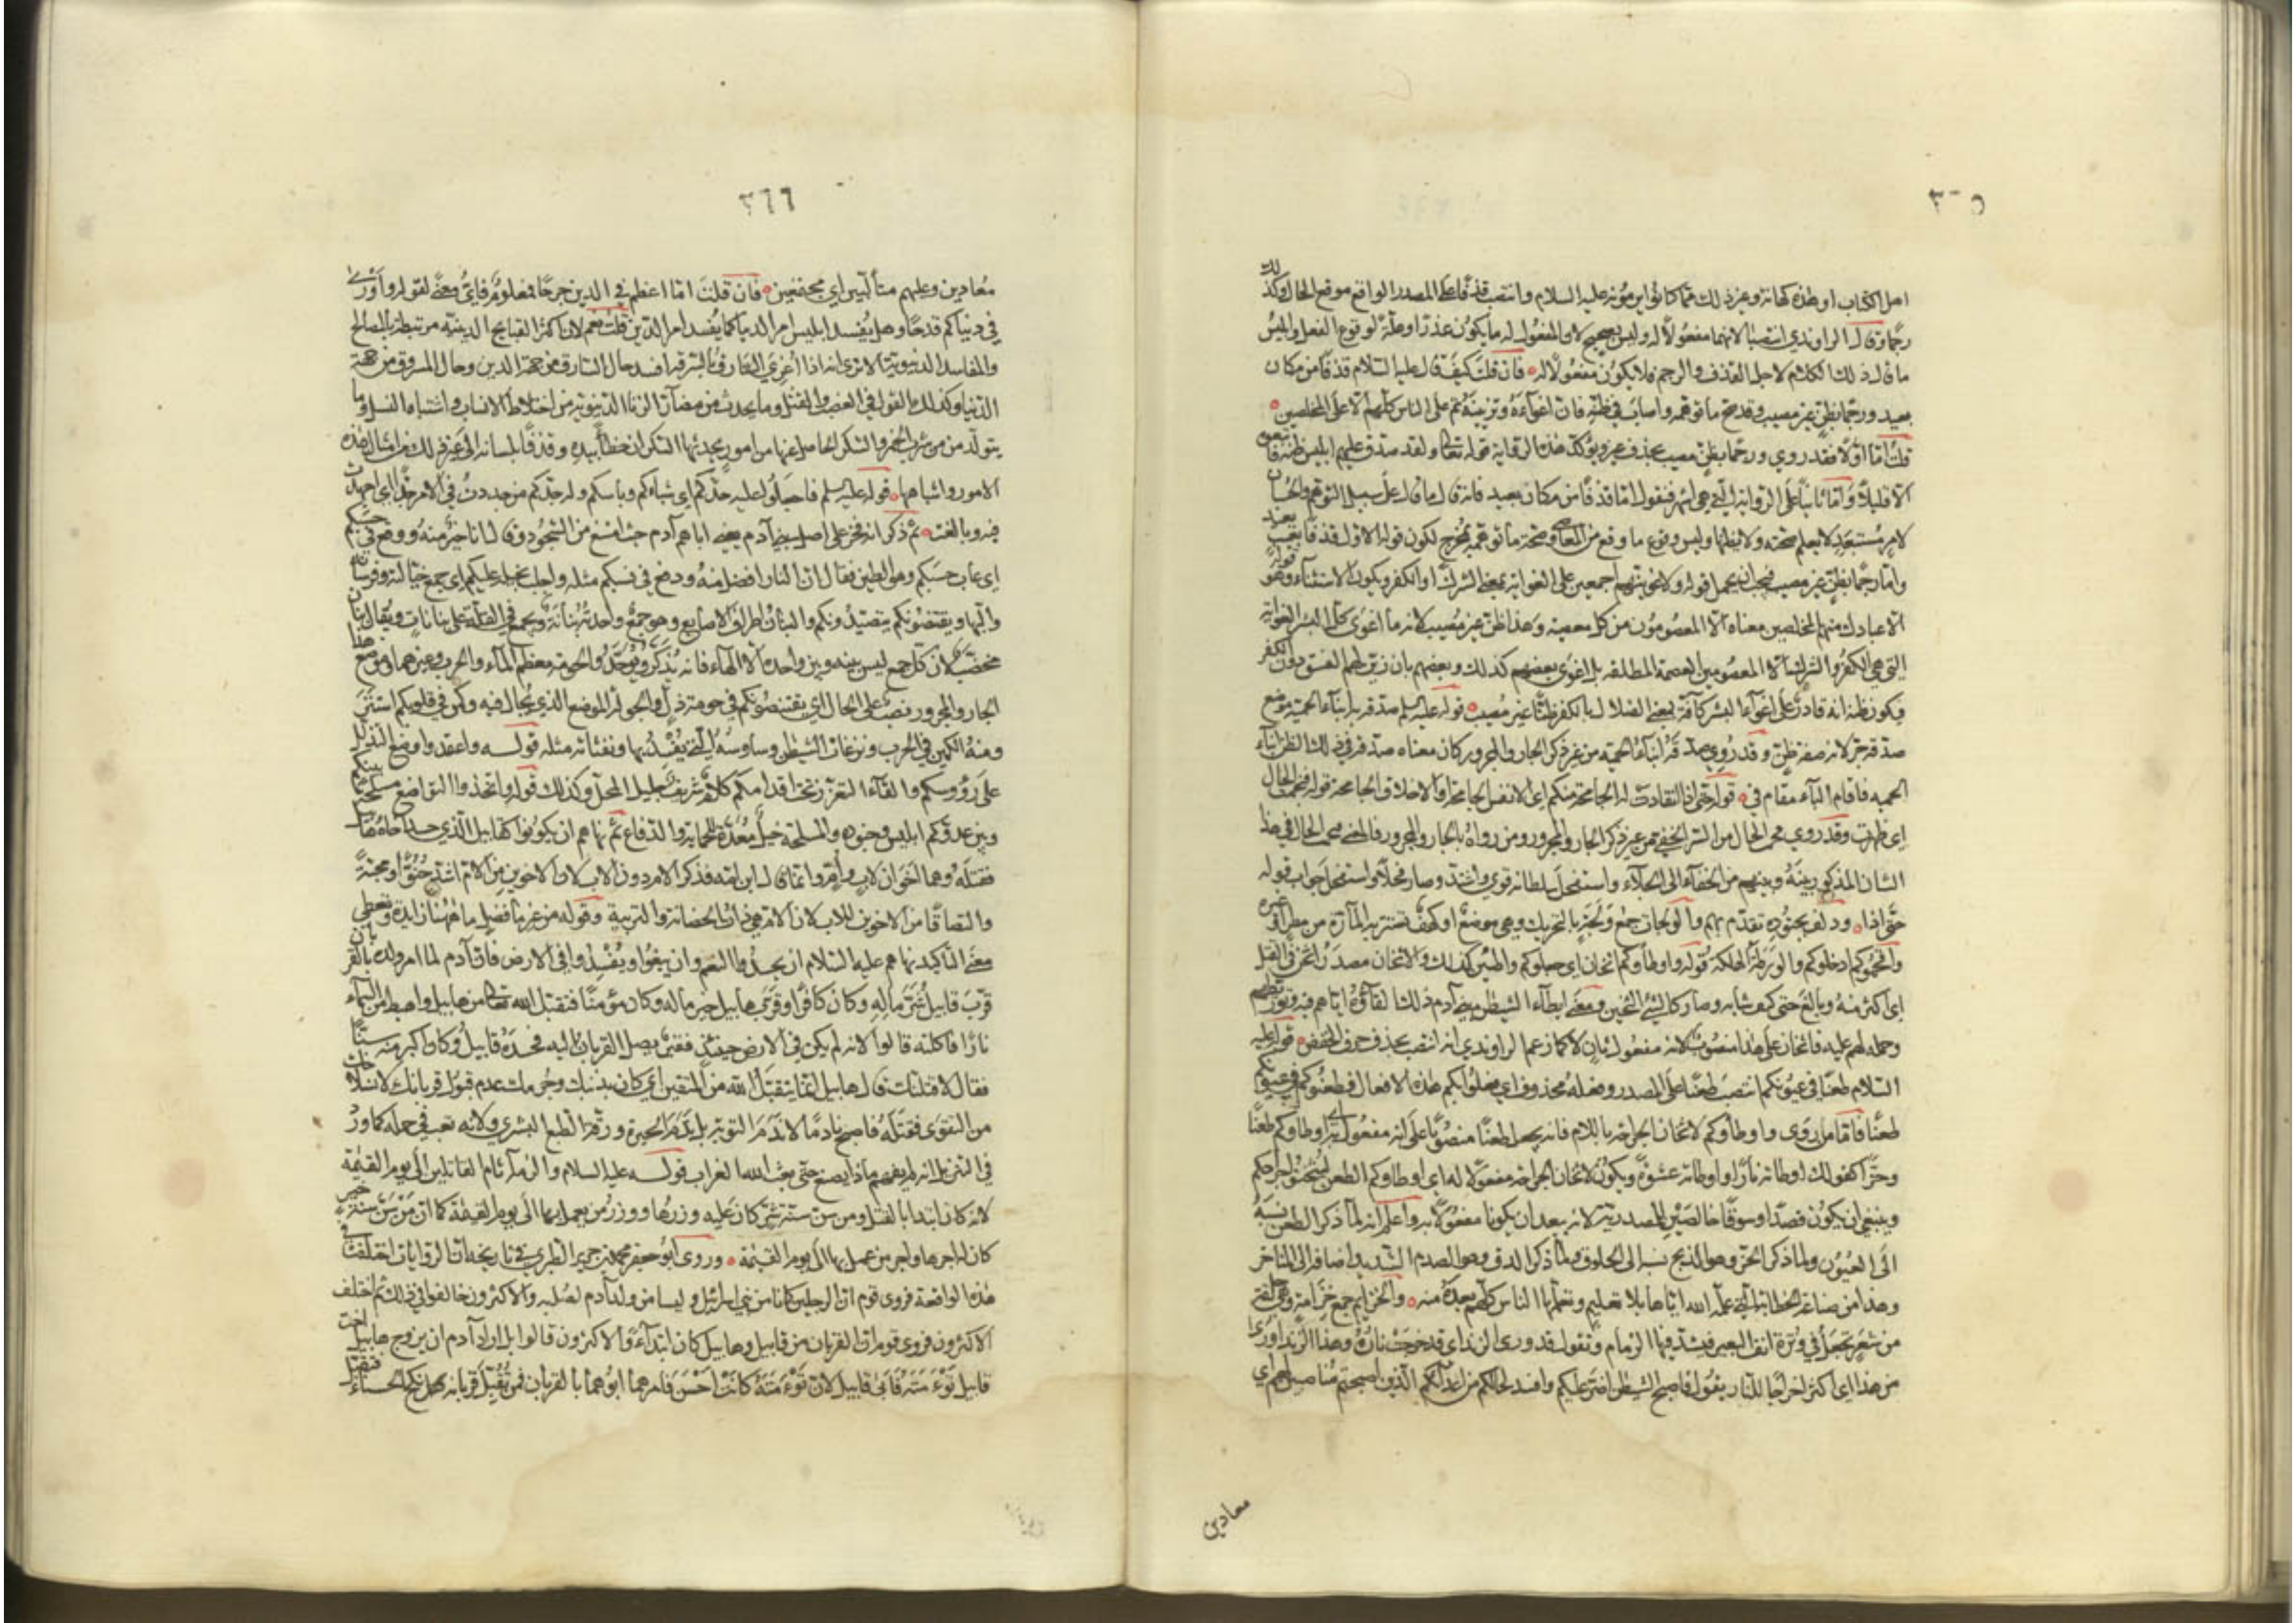 ٣٦٥
اهل الكتاب او هذه كهانة وغير ذلك مما كانوا يرمونه عليه السلام وانتصب قذفا على المصدر الواقع موقع الحال وكذلك
رجما وقال الراوندي انتصبا لانهما مفعول له وليس بصحيح لان المفعول له ما يكون عذرا وعلة لوقوع الفعل وابليس
ما قال ذلك الكلام لاجل القذف والرجم فلا يكون مفعولا له فان قلت كيف قال عليه السلام قذفا من مكان
بعيد ورجما بظن غير مصيب وقد صح ما توهمه واصاب في ظنه فان اغواءه وتزيينه تم على الناس كلهم الا على المخلصين
قلت اما اولا فقد روي ورجما بظن مصيب بحذف غير ويؤكد هذه الرواية قوله تعالى ولقد صدق عليهم ابليس ظنه فاتبعوه
الا قليلا واما ثانيا على الرواية التي هي اشهر فنقول اما قذفا من مكان بعيد فانه قال ما قال على سبيل التوهم والحسبان
لامر مستبعد لا يعلم صحته ولا يظنها وليس وقوع ما وقع من المعاصي وصحة ما توهمه بمخرج لكون قوله الاول قذفا بغيب بعيد
واما رجما بظن غير مصيب فيجب ان يحمل قوله ولاغوينهم اجمعين على الغواية بمعنى الشرك او الكفر ويكون الاستثناء وهو قوله
الا عبادك منهم المخلصين معناه الا المعصومون من كل معصية وهذا ظن غير مصيب لانه ما اغوى كل البشر الغواية
التي هي الكفر والشرك الا المعصومين العصمة المطلقة بل اغوى بعضهم كذلك وبعضهم بان زين لهم الفسق دون الكفر
فيكون ظنه انه قادر على اغواء البشر كافة بمعنى الضلال بالكفر ظنا غير مصيب قوله عليه السلم صدقه به ابناء الحمية موضع
صدقه جر لانه صفة ظن وقد روي صدقه ابناء الحمية من غير ذكر الجار والمجرور كان معناه صدقه في ذلك الظن ابناء
الحمية فاقام الباء مقام في قوله حتى اذا انقادت له الجامحة منكم اي الانفس الجامحة او الاخلاق الجامحة قوله فنجمت الحال
اي ظهرت وقد روي فنجمت الحال من السر الخفي من غير ذكر الجار والمجرور ومن رواه بالجار والمجرور فالمعنى فنجمت الحال في هذا
الشان المذكور بينه وبينهم من الخفاء الى الجلاء واستفحل سلطانه قوي واشتد وصار فحلا واستفحل جواب قوله
حتى اذا ودلف بجنوده تقدم بهم والولجات جمع ولجة بالتحريك وهي موضع او كهف تستتر به المارة من مطر او غيره
واقحموكم ادخلوكم والورطة الهلكة قوله واوطأوكم اثخان اي جعلوكم واطئين كذلك والاثخان مصدر اثخن في القتل
اي اكثر منه وبالغ حتى كثف شانه وصار كالشيء الثخين ومعنى ايطاء الشيطن بني آدم ذلك القاؤه اياهم فيه وتوريطهم
وحمله لهم عليه فاثخان على هذا منصوب لانه مفعول ثان لا كما زعم الراوندي انه انتصب بحذف حرف الخفض قوله عليه
السلام طعنا في عيونكم انتصب طعنا على المصدر وفعله محذوف اي فعلوا بكم هذه الافعال فطعنوكم في عيونكم
طعنا فاما من روى واوطأوكم لاثخان الجراحة باللام فانه يجعل طعنا منصوبا على انه مفعول به اي اوطأوكم طعنا
وحزا كقولك اوطأته نارا واوطأته عشوة ويكون لاثخان الجراحة مفعولا له اي اوطأوكم الطعن ليثخنوا جراحكم
وينبغي ان يكون قصدا وسوقا خالصين للمصدرية لانه يبعد ان يكونا مفعولا به واعلم انه لما ذكر الطعن نسبه
الى العيون ولما ذكر الحز وهو الذبح نسبه الى الحلوق ولما ذكر الدق وهو الصدم الشديد اضافه الى المناخر
وهذا من صناعة الخطابة التي علمه الله اياها بلا تعليم وتعلمها الناس كلهم بعده منه والخزائم جمع خزامة وهي حلقة
من شعر تجعل في وترة انف البعير فيشد فيها الزمام وتقول قد ورى الزند اي قد خرجت ناره وهذا الزند اورى
من هذا اي اكثر اخراجا للنار يقول فاصبح الشيطن اضر عليكم وافسد لحالكم من اعدائكم الذين اصبحتم مناصبين لهم اي
معادين
٣٦٦
معادين وعليهم متألبين اي مجتمعين فان قلت اما اعظم في الدين جرحا فمعلوم فاي معنى لقوله واورى
في دنياكم قدحا وهل يفسد ابليس امر الدنيا كما يفسد امر الدين قلت نعم لان اكثر القبايح الدينية مرتبطة بالمصالح
والمفاسد الدنيوية الا ترى انه اذا اغري السارق بالسرقة افسد حال السارق من جهة الدين وحال المسروق من جهة
الدنيا وكذلك القول في الغصب والقتل وما يحدث من مضار الزنا الدنيوية من اختلاط الانساب واشتباه النسل وما
يتولد من شرب الخمر والسكر الحاصل عنها من امور يحدثها السكران خطأ بيده وقذفا بلسانه الى غير ذلك من امثال هذه
الامور واشباهها قوله عليه السلم فاجعلوا عليه حدكم اي شباتكم وباسكم وله جدكم من جددت في الامر جدا اي اجتهدت
فيه وبالغت ثم ذكر انه فخر على اصل بني آدم يعني اباهم آدم حيث امتنع من السجود وقال انا خير منه ووقع في حسبكم
اي عاب حسبكم وهو الطين فقال ان النار افضل منه ودفع في نسبكم مثله واجلب بخيله عليكم اي جمع خيالته وفرسانه
والبها ويقتنصونكم يتصيدونكم والبنان اطراف الاصابع وهو جمع واحدته بنانة ويجمع في القلة على بنانات ويقال بنان
مخضب لان كل جمع ليس بينه وبين واحده الا الهاء فانه يذكر ويوحد والحومة معظم الماء والحرب وغيرهما وموضع هذا
الجار والمجرور نصب على الحال اي يقتنصونكم في حومة ذل والجولة الموضع الذي يجال فيه وكمن في قلوبكم استتر
ومنه الكمين في الحرب ونزغات الشيطن وساوسه التي يفسد بها ونفثاته مثله قوله واعتمدوا وضع التذلل
على رؤوسكم والقاء التعزز تحت اقدامكم كلام شريف جليل المحل وكذلك قوله واتخذوا التواضع مسلحة بينكم
وبين عدوكم ابليس وجنوده والمسلحة خيل معدة للحماية والدفاع ثم نهاهم ان يكونوا كقابيل الذي حسد اخاه هابيل
فقتله وهما اخوان لاب وام وانما قال ابن امه فذكر الام دون الاب لان الاخوين من الام اشد حنوا ومحبة
والتصاقا من الاخوين للاب لان الام هي ذات الحضانة والتربية وقوله من غير ما فضل ما ههنا زايدة وتعطي
معنى التأكيد نهاهم عليه السلام ان يحسدوا النعم وان يبغوا ويفسدوا في الارض فان آدم لما امر ولده بالقربان
قرب قابيل شر ماله وكان كافرا وقرب هابيل خير ماله وكان مؤمنا فتقبل الله تعالى من هابيل واهبط من السماء
نارا فاكلته قالوا لانه لم يكن في الارض حينئذ فقير يصل القربان اليه فحسده قابيل وكان اكبر منه سنا
فقال لاقتلنك قال هابيل انما يتقبل الله من المتقين اي كان بذنبك وجرمك عدم قبول قربانك لانسلاخك
من التقوى فقتله فاصبح نادما لا ندم التوبة بل ندم الحيرة ورقة الطبع البشري ولانه تعب في حمله كما ورد
في التنزيل انه لم يفهم ماذا يصنع حتى بعث الله الغراب قوله عليه السلام والزمه آثام القاتلين الى يوم القيمة
لانه كان ابتدا بالقتل ومن سن سنة شر كان عليه وزرها ووزر من يعمل بها الى يوم القيمة كما ان من سن سنة خير
كان له اجرها واجر من عمل بها الى يوم القيمة وروى ابو جعفر محمد بن جرير الطبري في تاريخه ان الروايات اختلفت في
هذه الواقعة فروى قوم ان الرجلين كانا من بني اسرائيل وليسا من ولد آدم لصلبه والاكثرون خالفوا في ذلك ثم اختلف
الاكثرون فروى قوم ان القربان من قابيل وهابيل كان ابتداء والاكثرون قالوا بل اراد آدم ان يزوج هابيل اخت
قابيل توءمته فابى قابيل لان توءمته كانت احسن فامرهما ابوهما بالقربان فمن تقبل قربانه نكح الحسناء فتقبل